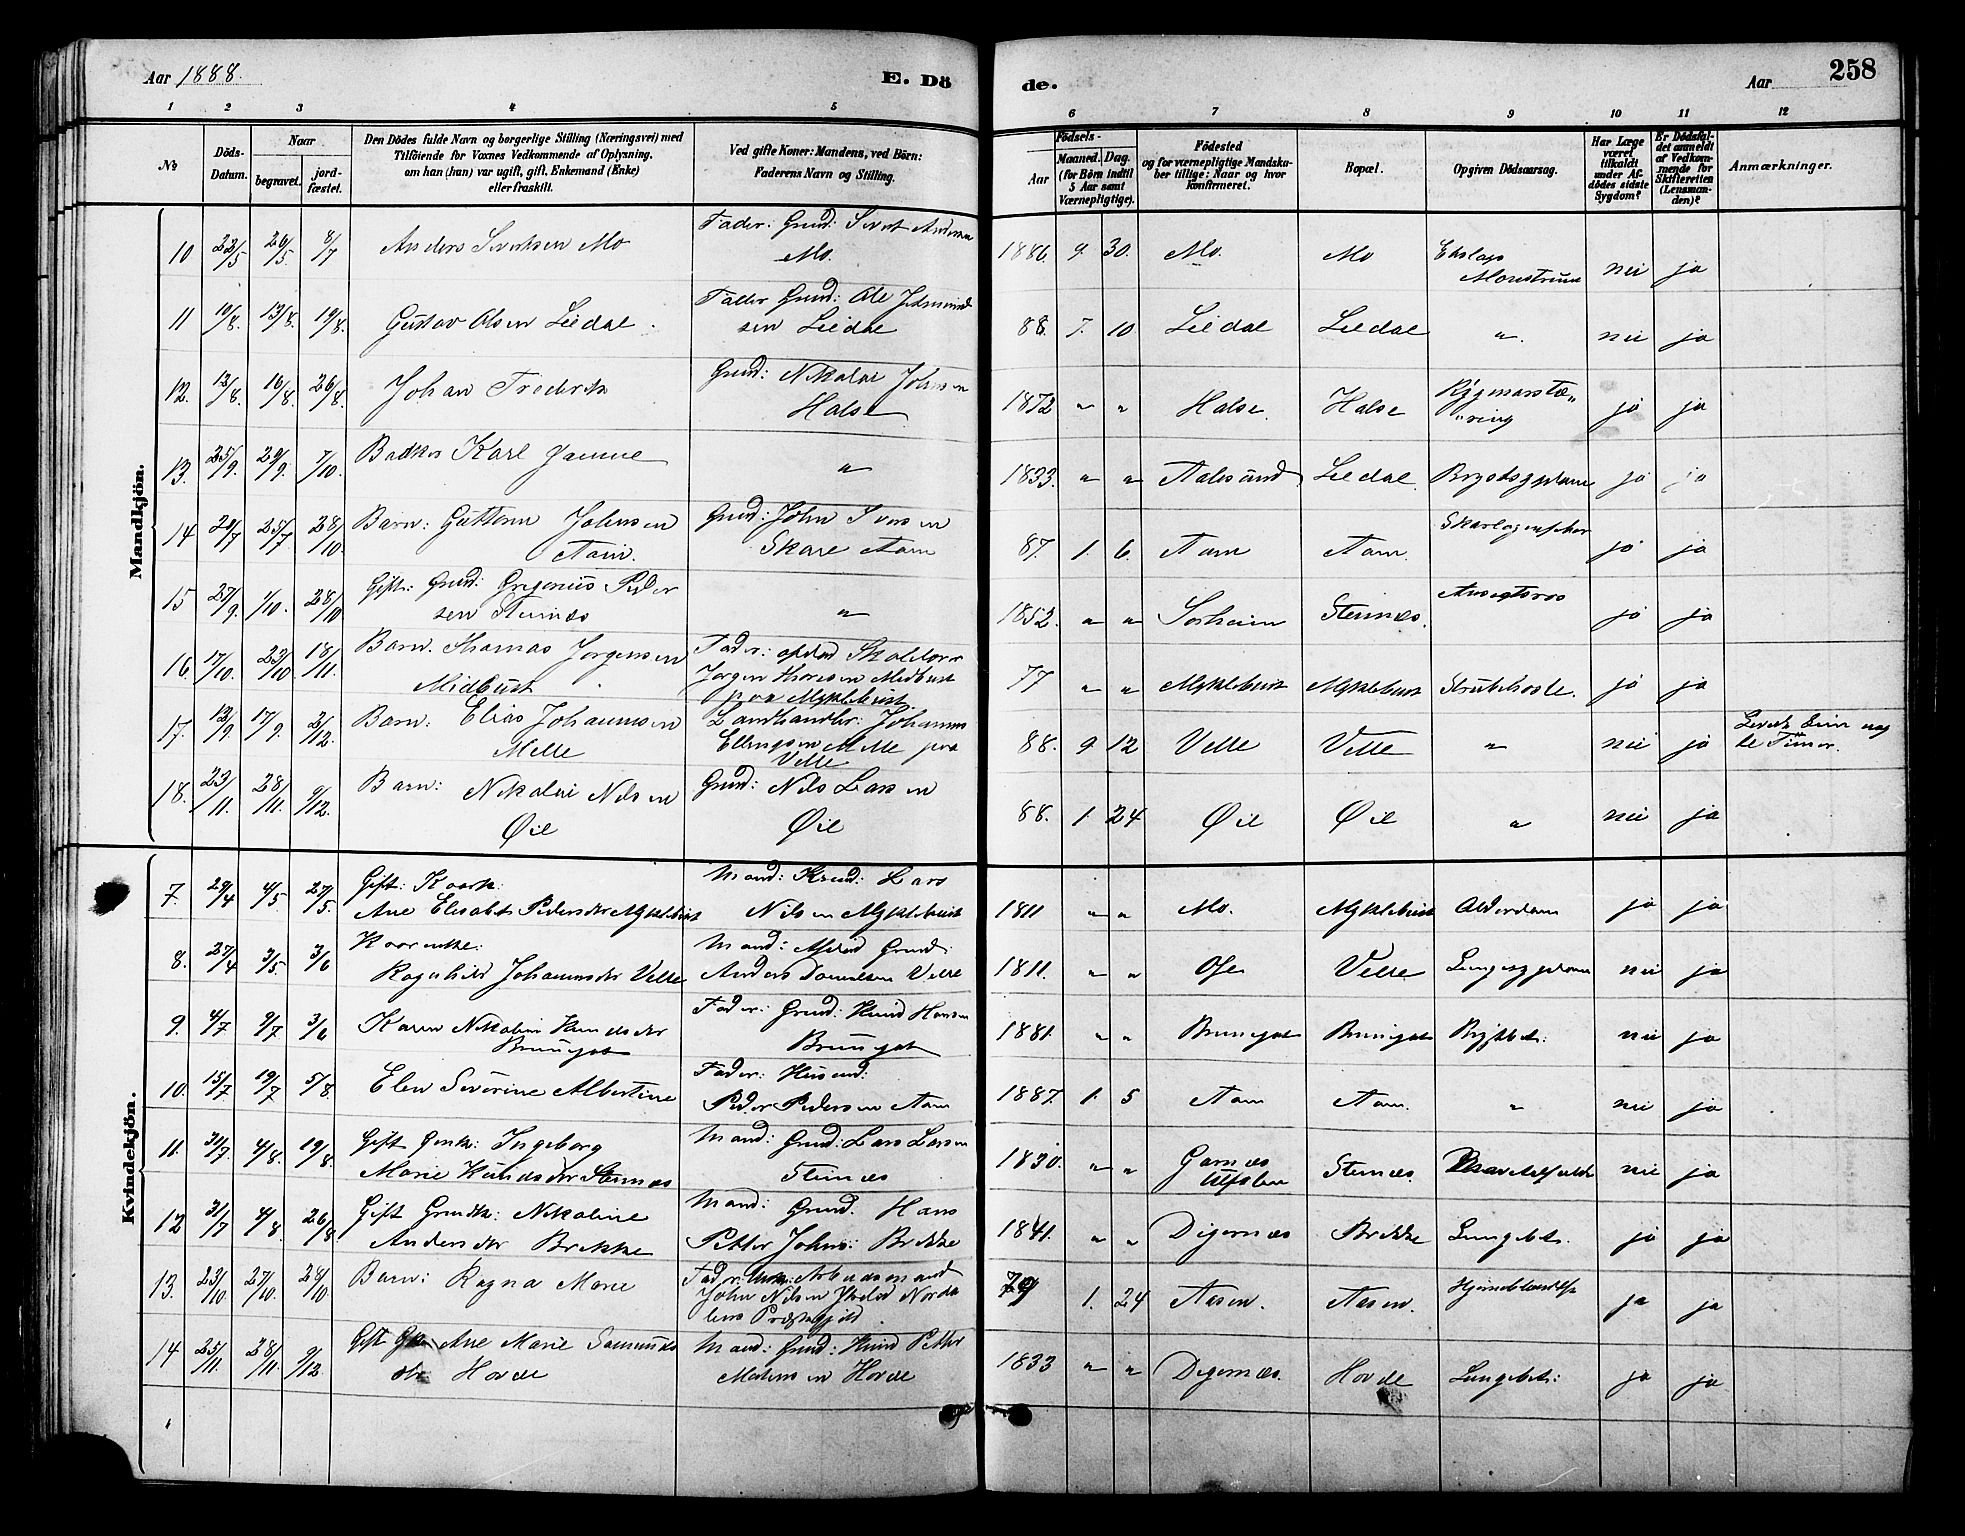 Aar 1888. E. Dö de. Aar 258
1 2 3 4 5 6 7 8 9 10 11 12
No
Döds-Datum.
Naar begravet. jord-fæstet.
Den Dödes fulde Navn og borgerlige Stilling (Næringsvei) med
Tilföiende for Voxnes Vedkommende af Oplysning,
om han (hun) var ugift, gift, Enkemand (Enke)
eller fraskilt.
Ved gifte Koner: Mandens, ved Börn:
Faderens Navn og Stilling.
Födsels-
Aar Maaned. Dag.
(for Börn indtil 5 Aar samt Værnepligtige).
Födested
og for værnepligtige Mandska-
ber tillige: Naar og hvor
konfirmeret.
Bopæl.
Opgiven Dödsaarsag.
Har Læge været tilkaldt under Af-dödes sidste Sygdom?
Er Dödsfal-det anmeldt af Vedkom-mende for Skifteretten (Lensman-den)?
Anmærkninger.
Mandkjön.
10 22/5 26/5 8/7 Anders Sivertsen Mo Fader: Grmd: Sivert Andersen
Mo. 1886. 9. 30. Mo. Mo
Monstrum nei ja
11 10/8. 13/8. 19/8. Gustav Olsen Leedal. Fader Grmd: Ole
sen Leedal 88. 7. 10 Leedal Leedal " nei ja
12. 12/8. 16/8. 26/8. Johan Frederik Grmd: Nikolai Johnsen
Halse 1872 " " Halse. Halse Rygmarstæ"
"ring ja ja
13. 25/9. 29/9. 7/10. Karl " 1833. " " Aalesund Leedal. ja ja
14 20/7 25/7 28/10. Barn: Guttorm Johnsen Grmd: John Iversen
Aam. Skare Aam 87. 1. 6. Aam Aam. ja ja
15 27/9. 1/10. 28/10 Gift: Grmd: Gregorius Peder
sen Steinnes " 1852. " " Sorheim Steinnes. ja ja
16. 17/10. 23/10 18/11. Barn. Thomas Jorgensen
Midbust Fader:
Jorgen Thoresen Midbust
paa Myklebust. 77 " " Myklebust Myklebust Strubehoste. ja ja
17. 12/9 17/9. 2/12. Barn: Elias Johannesen
Melle Landhandler: Johannes
Ellingsen Melle paa
Velle 88. 9. 12 Velle Velle " nei ja Levede
Timer.
18. 23/11. 28/11. 9/12. Barn: Nikolai Nilsen Grmd: Nils Larsen
Øie Øie 88. 1. 24 Øie Øie " nei ja
Kvindekjön.
7. 29/4 4/5 27/5. Gift:
Ane Elisabet Pedersdtr Myklebust Mand: Lars
Nilsen Myklebust 1811 " " Mo. Myklebust Alderdom ja ja
8. 27/4 3/5. 3/6
Ragnhild Johannesdtr Velle Mand: Afdød Grmd:
Anders Danielsen Velle 1811. " " Velle nei ja
9. 4/7 9/7 3/6 Karen Nikoline Knudsdtr
Bruungot Fader: Grmd: Knud Hansen
Bruungot 1881. " " Bruungot Bruungot nei ja
10. 15/7 19/7 5/8. Elen Severine Albertine Fader: Husmd:
Peder Pedersen Aam 1887. 1. 5 Aam Aam. " nei ja
11. 31/7 4/8. 19/8. Gift Grmk: Ingeborg
Marie Knudsdtr Steinnes Mand: Grmd: Lars Larsen
Steinnes 1830. " " Garnes
Ulfsten Steinnes. nei ja
12 31/7 4/8. 26/8. Gift Grmdk: Nikoline
Andersdtr Brekke Mand: Grmd. Hans
Petter Johns: Brekke 1841. " " Digernes Brekke Lungebet. ja ja
13. 23/10. 27/10. 28/10 Barn: Ragna Marie Fader: Arbeidsmand
John Nilsen Norda
lens Præstegjeld. 79 1. 24 Aasen. Aasen. ja ja
14 25/11. 28/11. 9/12. Gift Ane Marie
dtr Hovde Mand: Grmd: Knud Petter
Hovde 1833 " " Digernes. Hovde Lungebet: ja ja